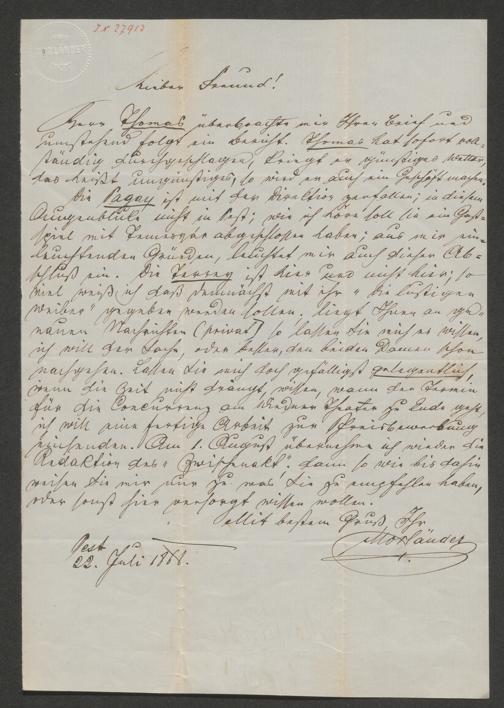 I.N. 27913
Lieber Freund!
Herr Thomas überbrachte mir Ihren Brief und
umstehend folgt ein Bericht. Thomas hat sofort voll-
ständig durchgeschlagen, kriegt er günstiges Wetter,
das heißt ungünstiges, so wird er auch ein Geschäft machen.
Die Pagay ist mit der Direktion zerfallen; in diesem
Augenblicke nicht in Pest; wie ich höre soll sie ein Gast-
spiel mit Temesvár abgeschlossen haben; aus mir ein-
leuchtenden Gründen, leuchtet mir auch dieser Ab-
schluß ein. Die ist hier und nicht hier; so
viel weiß ich daß demnächst mit ihr "die lustigen
Weiber" gegeben werden sollen. Liegt Ihnen an ge-
nauen Nachrichten (privat) so lassen Sie mich es wissen,
ich will der Sache, oder besser, den beiden Damen schon
nachgehen. Lassen Sie mich doch gefälligst gelegentlich,
wenn die Zeit nicht drängt, wissen, wann der Termin
für die Concurrenz am Wiedner Theater zu Ende geht,
ich will eine fertige Arbeit zur Preisbewerbung
einsenden. Am 1. August übernehme ich wieder die
Redaktion des "Zwischenakt". Dann so wie bis dahin
weisen Sie mir nur zu was Sie zu empfehlen haben,
oder sonst hier versorgt wissen wollen.
Mit bestem Gruß, Ihr
Morländer
Pest
22. Juli 1868.